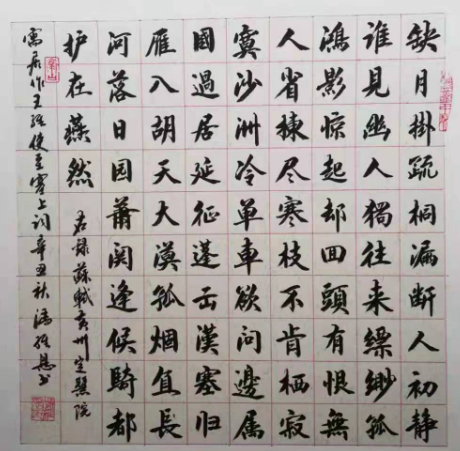 缺月掛疏桐漏断人初静
谁見幽人獨往来缥缈孤
鴻影惊起却回頭有恨無
人省揀尽寒枝不肯栖寂
寞沙洲冷单車欲問邊属
國過居延征蓬出漢塞归
雁入胡天大漠孤烟直長
河落日园萧関逢候騎都
护在燕然 右録蘇軾黄州定慧院
寓居作王維使至塞上词辛丑秋书